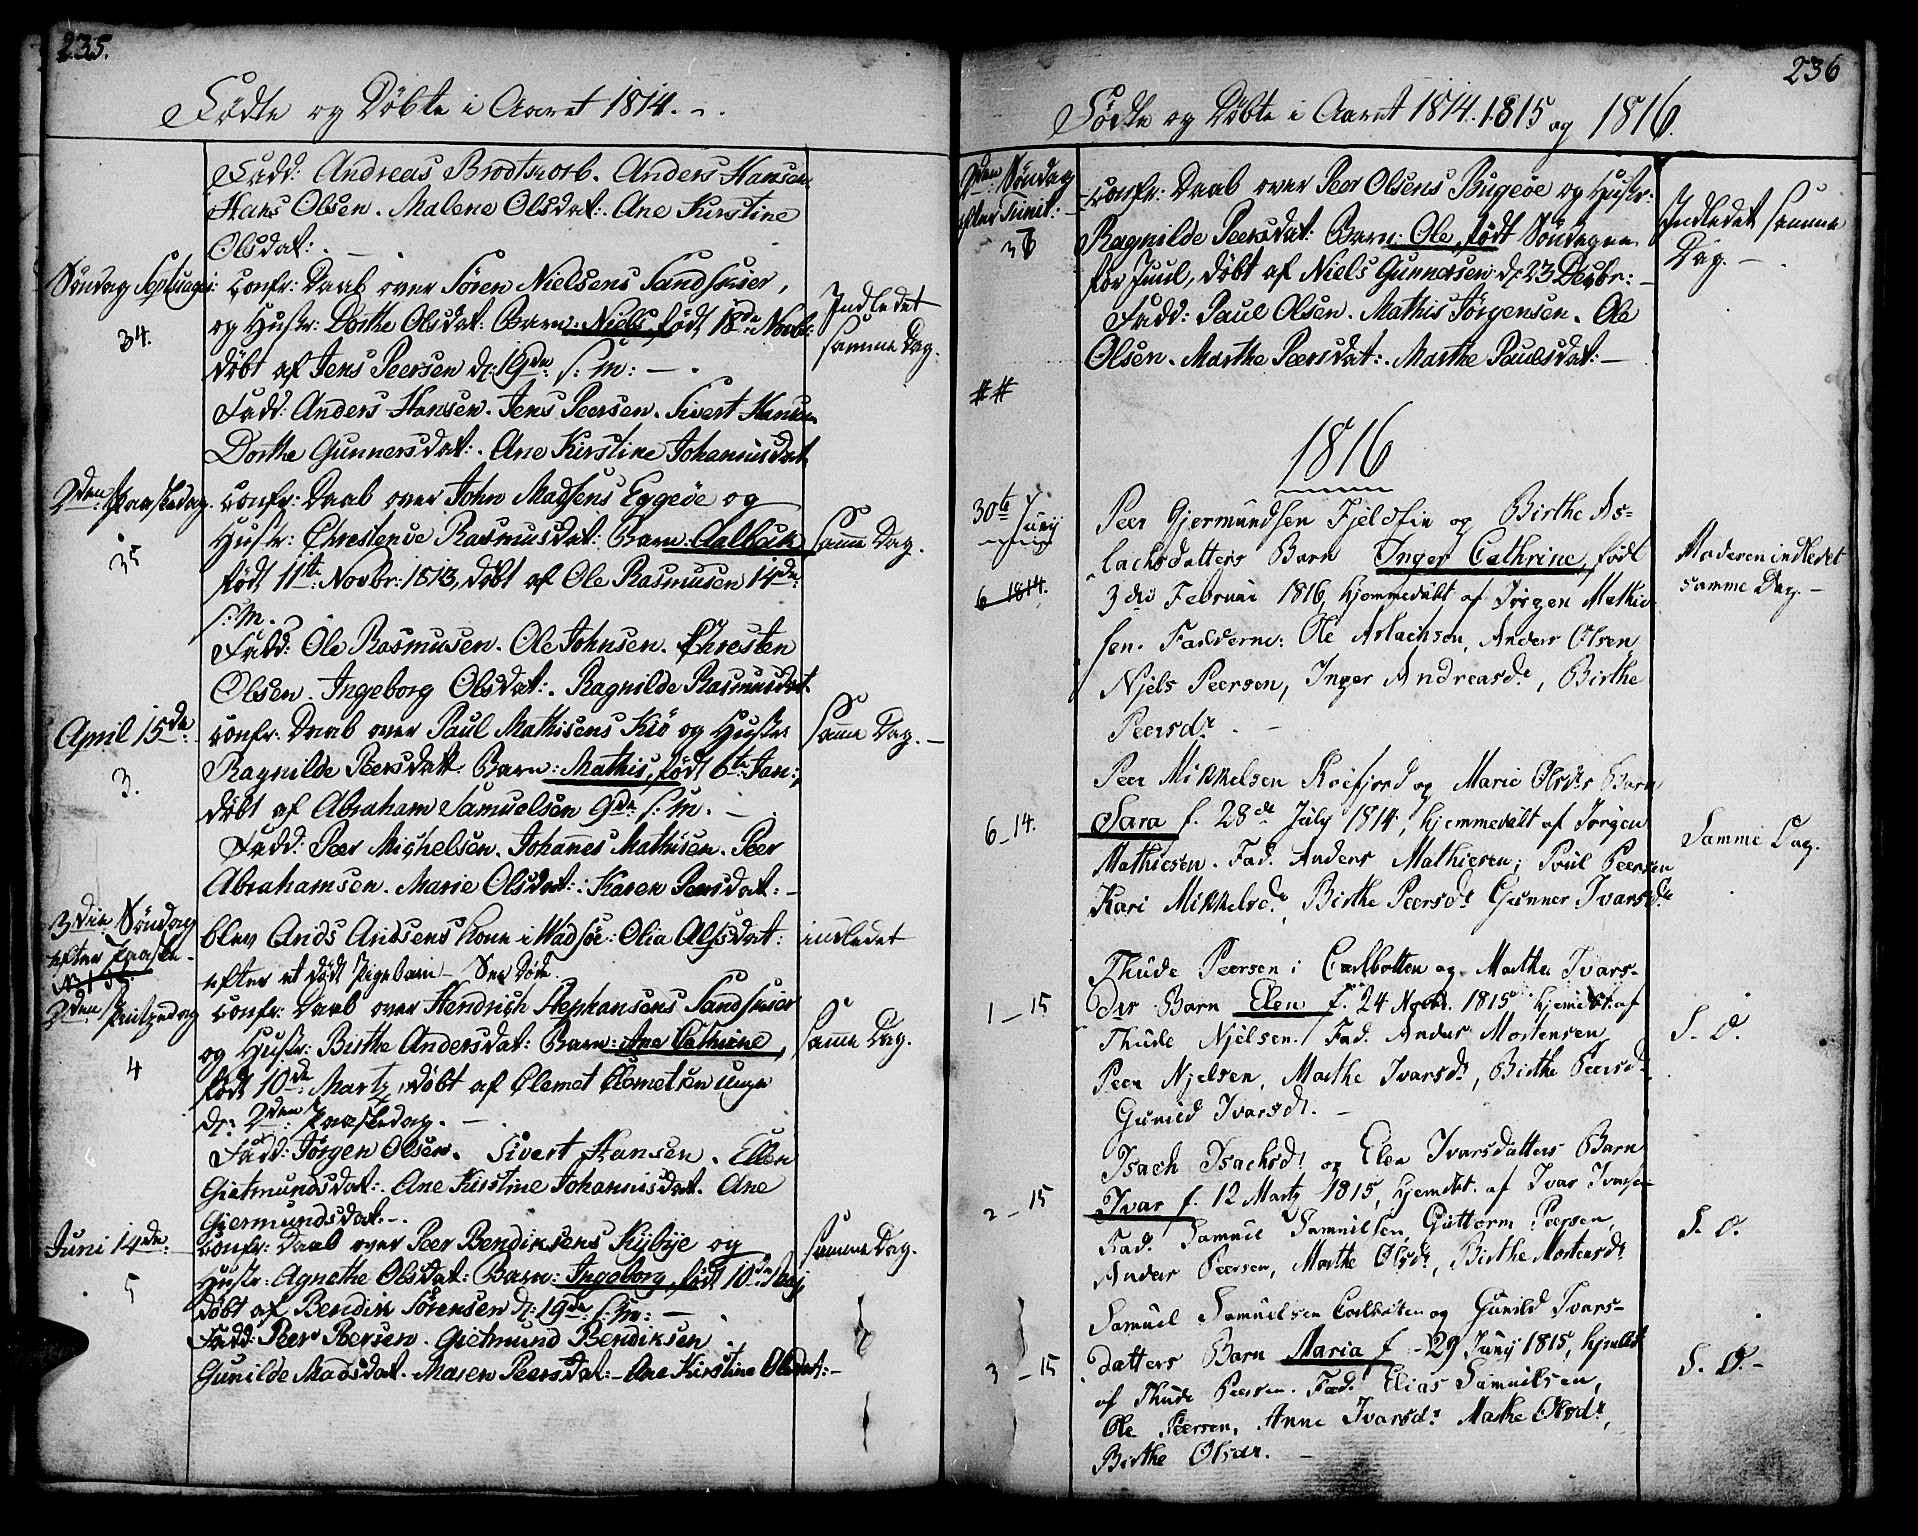 235.
Födte og Döbte i Aaret 1814.
Fadd: Andreas Brodtkorb. Anders Hansen
Hans Olsen. Malene Olsdat: Ane Kirstine
Olsdat:
Söndag Septuages: Confr: Daab over Sören Nielsens Sandskiær,
34.
og Hustr: Dorthe Olsdat: Barn: Niels, födt 18de Novbr:
döbt af Jens Peersen d: 19de s: m: —
Indledet
samme Dag.
Fadd: Anders Hansen. Jens Peersen. Sivert Hansen
Dorthe Gunnersdat: Ane Kirstine Johannisdat
2den Paaskedag. Confr: Daab over John Madsens Eggeöe og
35
Hustr: Chrestence Rasmusdat: Barn: Aalbuk
Samme Dag.
födt 11te Novbr: 1813, döbt af Ole Rasmusen 14de
s: m.
Fadd: Ole Rasmusen. Ole Johnsen. Chresten
Olsen. Ingeborg Olsdat: Ragnilde Rasmusdat
April 15de
3.
Confr: Daab over Paul Mathisens Kiö og Hustr:
Samme Dag. —
Ragnilde Peersdat: Barn: Mathis, födt 6te Jan:,
döbt af Abraham Samuelsen 9de s: m. —
Fadd: Peer Michelsen. Johannes Mathisen. Peer
Abrahamsen. Marie Olsdat: Karen Peersdat: —
3die Söndag
efter Paaske
blev Ands Andsens Kone i Wadsöe: Olia Alfsdat:
indledet
efter et dödt Pigebarn — See Döde.
2den Pintzedag
4
Confr: Daab over Hendrich Stephansens Sandskiær
og Hustr: Birthe Andersdat: Barn: Ane Cathrine,
Samme Dag.
födt 10de Martz, döbt af Clemet Clemetsen unge
d: 2den Paaskedag. —
Fadd: Jörgen Olsen. Sivert Hansen. Ellen
Gietmundsdat: Ane Kirstine Johannisdat. Ane
Giermundsdat: —
Juni 14de
5
Confr: Daab over Peer Bendiksens Kybye og
Samme Dag.
Hustr: Agnethe Olsdat: Barn: Ingeborg, födt 10de Maj
döbt af Bendix Sörensen d: 19de s: m: —
Fadd: Peer Peersen. Gietmund Bendiksen
Gunilde Madsdat. Maren Peersdat: Ane Kirstine Olsdat: —
236
Födte og Döbte i Aaret 1814. 1815 og 1816.
2den Söndag
efter Trinit:
36
Confr: Daab over Peer Olsens Bugeöe og Hustr:
Indledet samme
Dag. —
Ragnilde Peersdat: Barn: Ole, födt Söndagen
for Juul, döbt af Niels Gunnersen d: 23 Decbr: —
Fadd: Paul Olsen. Mathis Jörgensen. Ole
Olsen. Marthe Peersdat: Marthe Paulsdat: —
##
1816
30te Junij
6 – 1814.
Peer Gjermundsen Fjeldfin og Birthe As=
lachsdatters Barn Inger Cathrine, född
Moderen indledet
samme Dag. —
3die Februari 1816, hjemmedöbt af Jörgen Mathie
sen. Fadderne: Ole Aslachsen, Anders Olsen,
Njels Peersen, Inger Andreasdr, Birthe
Peersdr. —
6 – 14.
Peer Mikkelsen Koefjord og Marie Olsdrs Barn
Sara f. 28de July 1814, hjemmedöbt af Jörgen
Samme Dag.
Mathiesen. Fad. Anders Mathiesen, Poul Peersen
Kari Mikkelsdr, Birthe Peersdr Gunner Ivarsdr
1 – 15
Thude Peersen i Carlbotten og Marthe Ivars-
drs Barn Elen f. 24 1815 hjemdbt. af
S. D.
Thude Njelsen. Fad. Anders Mortensen
Peer Njelsen, Marthe Ivarsdr, Birthe Peersdr
Gunild Ivarsdr. —
2 – 15
Isach Isachsdr og Elen Ivarsdatters Barn
Ivar f. 12 Martz 1815, hjemdbt. af Ivar Ivarsen
S. D.
Fad. Samuel Samuelsen, Guttorm Peersen,
Anders Peersen, Marthe Olsdr, Birthe Mortensdr
3 – 15
Samuel Samuelsen Carlbotten og Gunild Ivars-
datters Barn Maria f. 29 Junij 1815, hjmdbt
S. D. —
af Thude Peersen. Fad. Elias Samuelsen,
Ole Peersen, Anne Ivarsdr. Marthe Olsdr,
Birthe Olsdr. —